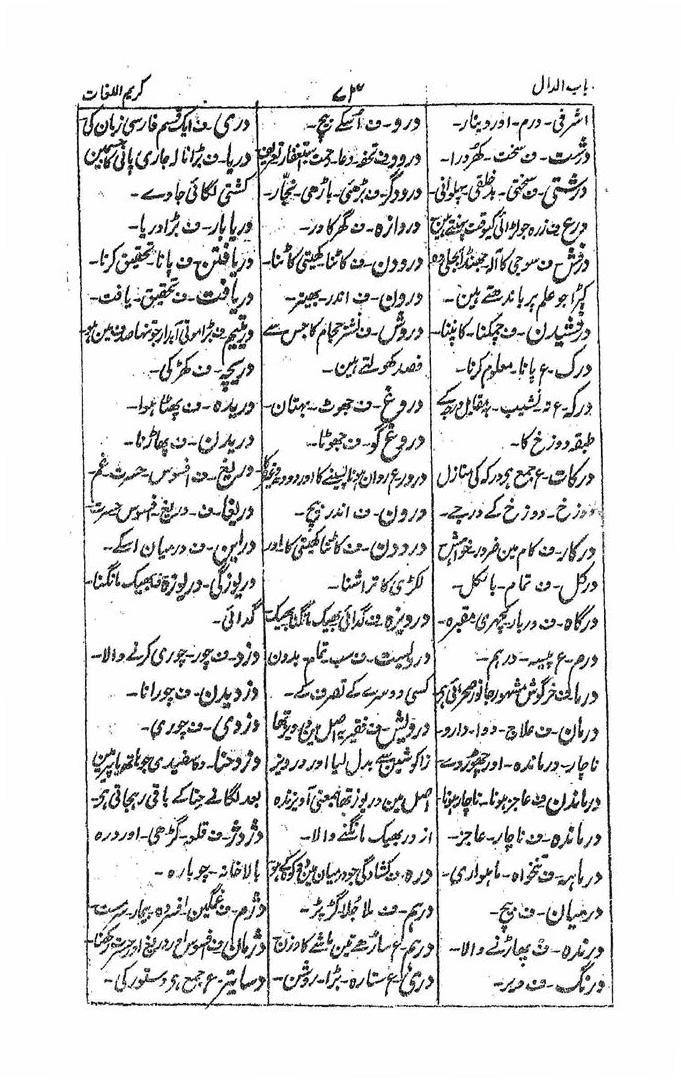 باب الدال
۷۳
کریم اللغات
اشرفی۔ درم۔ اور دینار۔
درشت۔ ف سخت۔ کھردرا۔
درشتی۔ ف سختی۔ بد خلقی۔ پہلوانی۔
درع ف زرہ جو لڑائی کیوقت پہنتے ہین
درفش ف سوجی کا آلہ جھنڈا بجلی وہ
کپڑا جو علم پر باندھتے ہین۔
درفشیدن۔ ف چمکنا۔ کانپنا۔
درک۔ ع پانا۔ معلوم کرنا۔
درکہ۔ ع تہ نشیب۔ مقابل درجہ کے
طبقہ دوزخ کا۔
درکات۔ ع جمع ہی درکہ کی منازل
دوزخ۔ دوزخ کے درجے۔
درکار۔ ف کام مین ضرور۔ خواہش
درکل۔ ف تمام۔ بالکل۔
درگاہ۔ ف دربار۔ کچہری۔ مقبرہ۔
درم۔ ع پیسہ۔ درہم۔
درما ف خرگوش مشہور جانور صحرائی ہی
درمان۔ ف علاج۔ دوا۔ دارو۔
ناچار۔ درماندہ۔ اور چھوڑدے
درماندن ف عاجز ہونا۔ ناچار ہونا
درماندہ۔ ف ناچار۔ عاجز۔
درماہہ۔ ف تنخواہ۔ ماہواری۔
درمیان۔ ف بیچ۔
درندہ۔ ف پھاڑنے والا۔
درنگ۔ ف دیر۔
درو۔ ف اُسکے بیچ۔
درود ف تحفہ۔ دعا۔ رحمت استغفار تعریف
درودگر۔ ف بڑھئی۔ باڑھی۔ نجّار۔
دروازہ۔ ف گھر کا در۔
درودن۔ ف کاٹنا کھیتی کاٹنا۔
درون۔ ف اندر۔ بھیتر۔
دروش۔ ف نشتر حجام کا جس سے
فصد کھولتے ہین۔
دروغ۔ ف جھوٹ۔ بہتان۔
دروغ گو۔ ف جھوٹا۔
درور۔ ع روان ہونا پسینے کا اور دودہ
درون۔ ف اندر بیچ۔
درودن۔ ف کاٹنا کھیتی کا اور
لکڑی کا تراشنا۔
دریوزہ ف گدائی بھیک مانگنا بھیک
دروبست۔ ف سب۔ تمام۔ بدون
کسی دوسرے کے تصرف کے۔
درویش۔ ف فقیر۔ یہ اصل مین درویز تھا
زا کو شین سے بدل لیا اور درویز
اصل مین دریوز تھا بمعنی آویزندہ
از در بھیک مانگنے والا۔
درہ۔ ف کشادگی جو درمیان مین دو کوہ کے ہو
درہم۔ ف ملا جُلا گڑبڑ۔
درہم۔ ع ساڑھے تین ماشے کا وزن
دری۔ ع ستارہ۔ بڑا۔ روشن۔
دری۔ ف ایک قسم فارسی زبان کی
دریا۔ ف بڑا نالہ جاری پانی کا جسمین
کشتی لگائی جاوے۔
دریا بار۔ ف بڑا دریا۔
دریافتن۔ ف پانا۔ تحقیق کرنا۔
دریافت۔ ف تحقیق۔ یافت۔
دریتیم۔ ف بڑا موتی آبدار جو تنہا صدف مین ہو
دریچہ۔ ف کھڑکی۔
دریدہ۔ ف پھٹا ہوا۔
دریدن۔ ف پھاڑنا۔
دریغ۔ ف افسوس۔ حسرت غم
دریغا۔ ف۔ دریغ۔ افسوس حسرت
دراین۔ ف درمیان اسکے۔
دریوزگی۔ دریوزہ ف بھیک مانگنا۔
گدائی۔
دزد۔ ف چور۔ چوری کرنے والا۔
دزدیدن۔ ف چورانا۔
دزدی۔ ف چوری۔
دزد حنا۔ وہ سفیدی جو ہاتھ یا پیر مین
بعد لگانے حنا کے باقی رہجاتی ہی۔
دژ دژ۔ ف قلعہ۔ گڑھی۔ اور درہ
بالاخانہ۔ چوبارہ۔
دژم۔ ف غمگین افسردہ بیمار۔
دژمان ف افسوس اور دریغ اور حسرت رکھنا۔
دساتیر۔ ع جمع ہی دستور کی۔